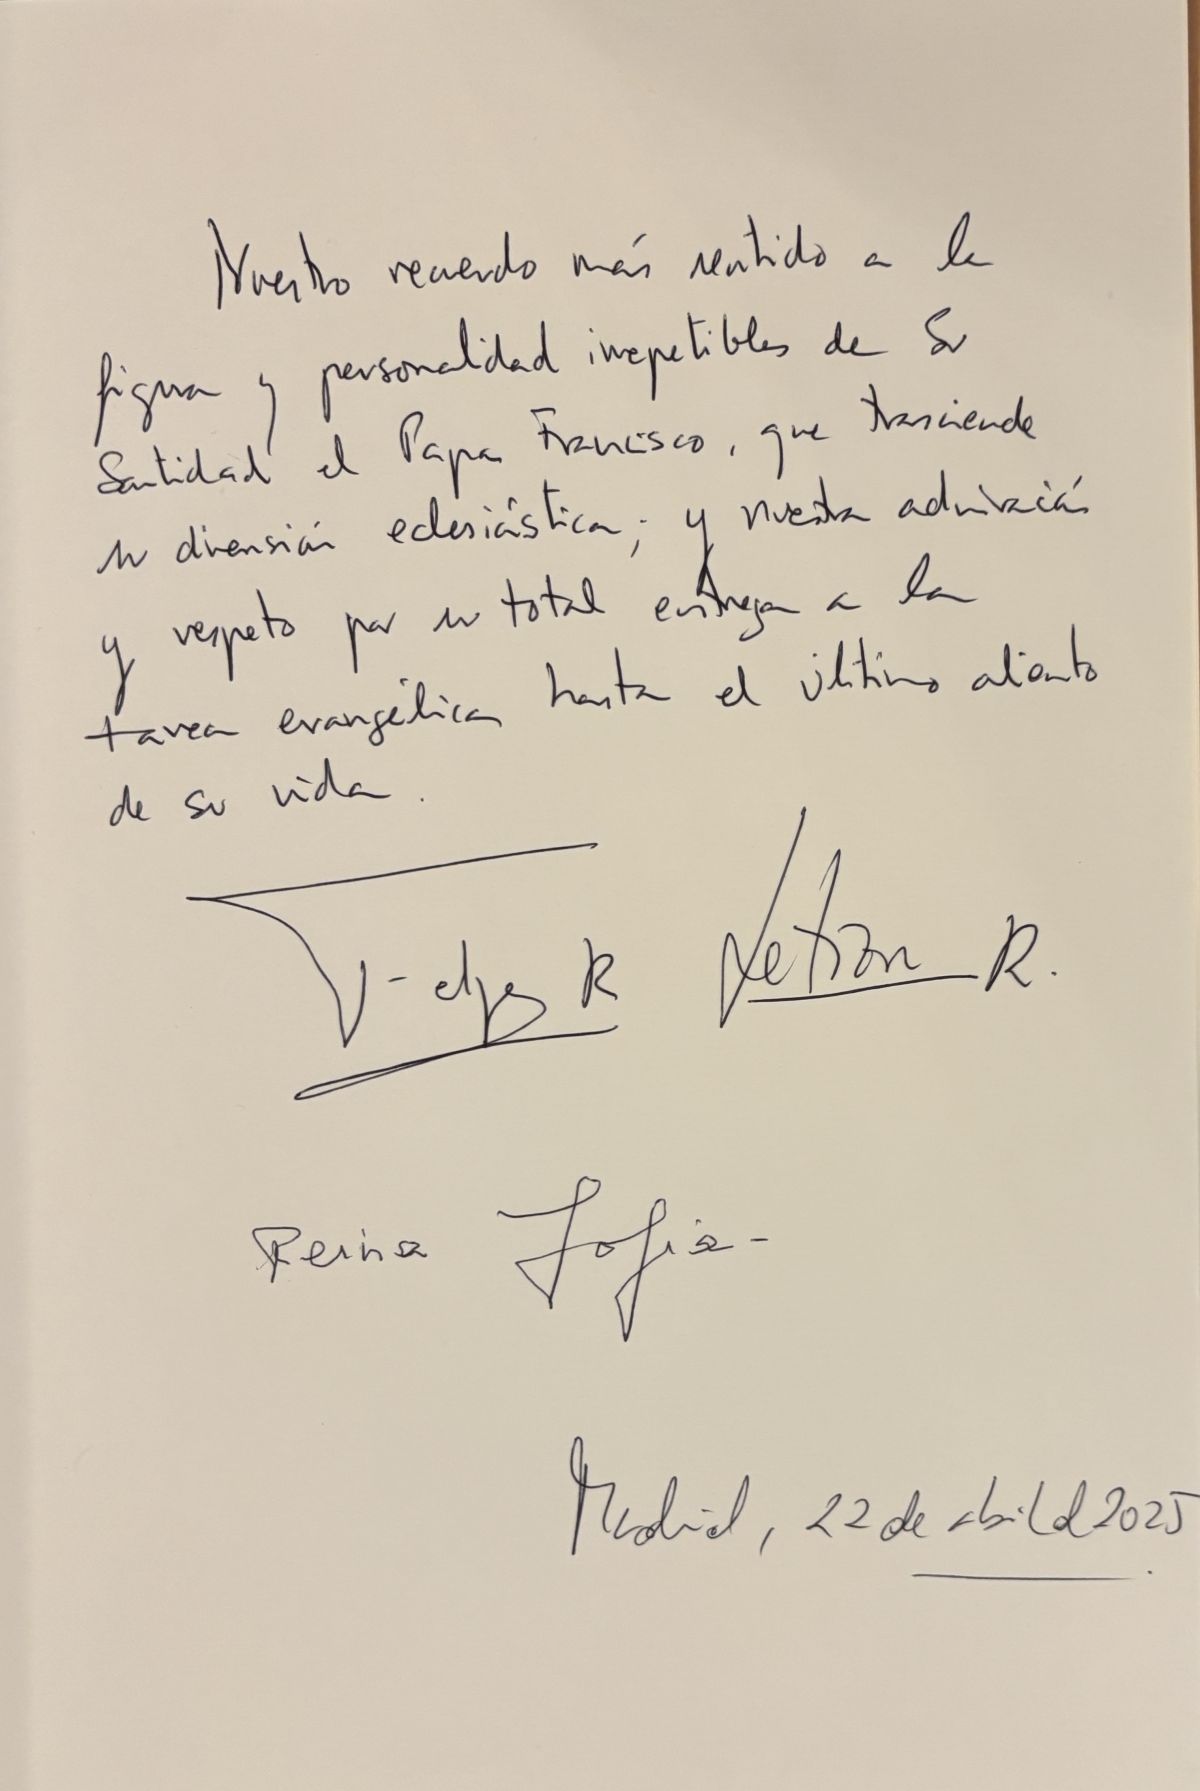 Nuestro recuerdo más sentido a la
figura y personalidad irrepetibles de Su
Santidad el Papa Francisco, que trasciende
su dimensión eclesiástica; y nuestra admiración
y respeto por su total entrega a la
tarea evangélica hasta el último aliento
de su vida.
Felipe R Letizia R.
Reina Sofía-
Madrid, 22 de abril d 2025